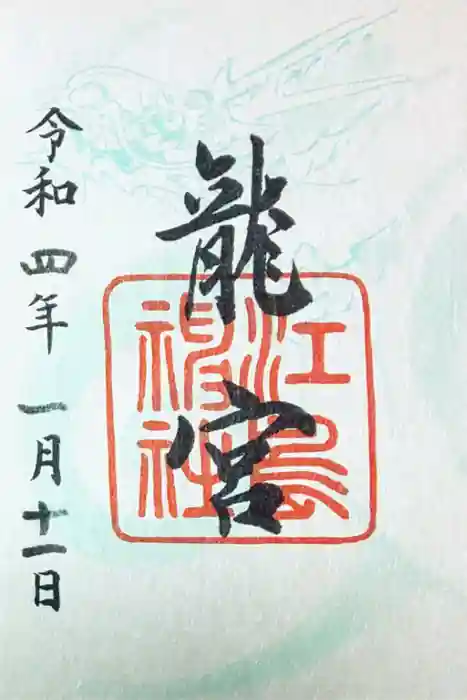 龍宮
江島神社
令和四年一月十一日